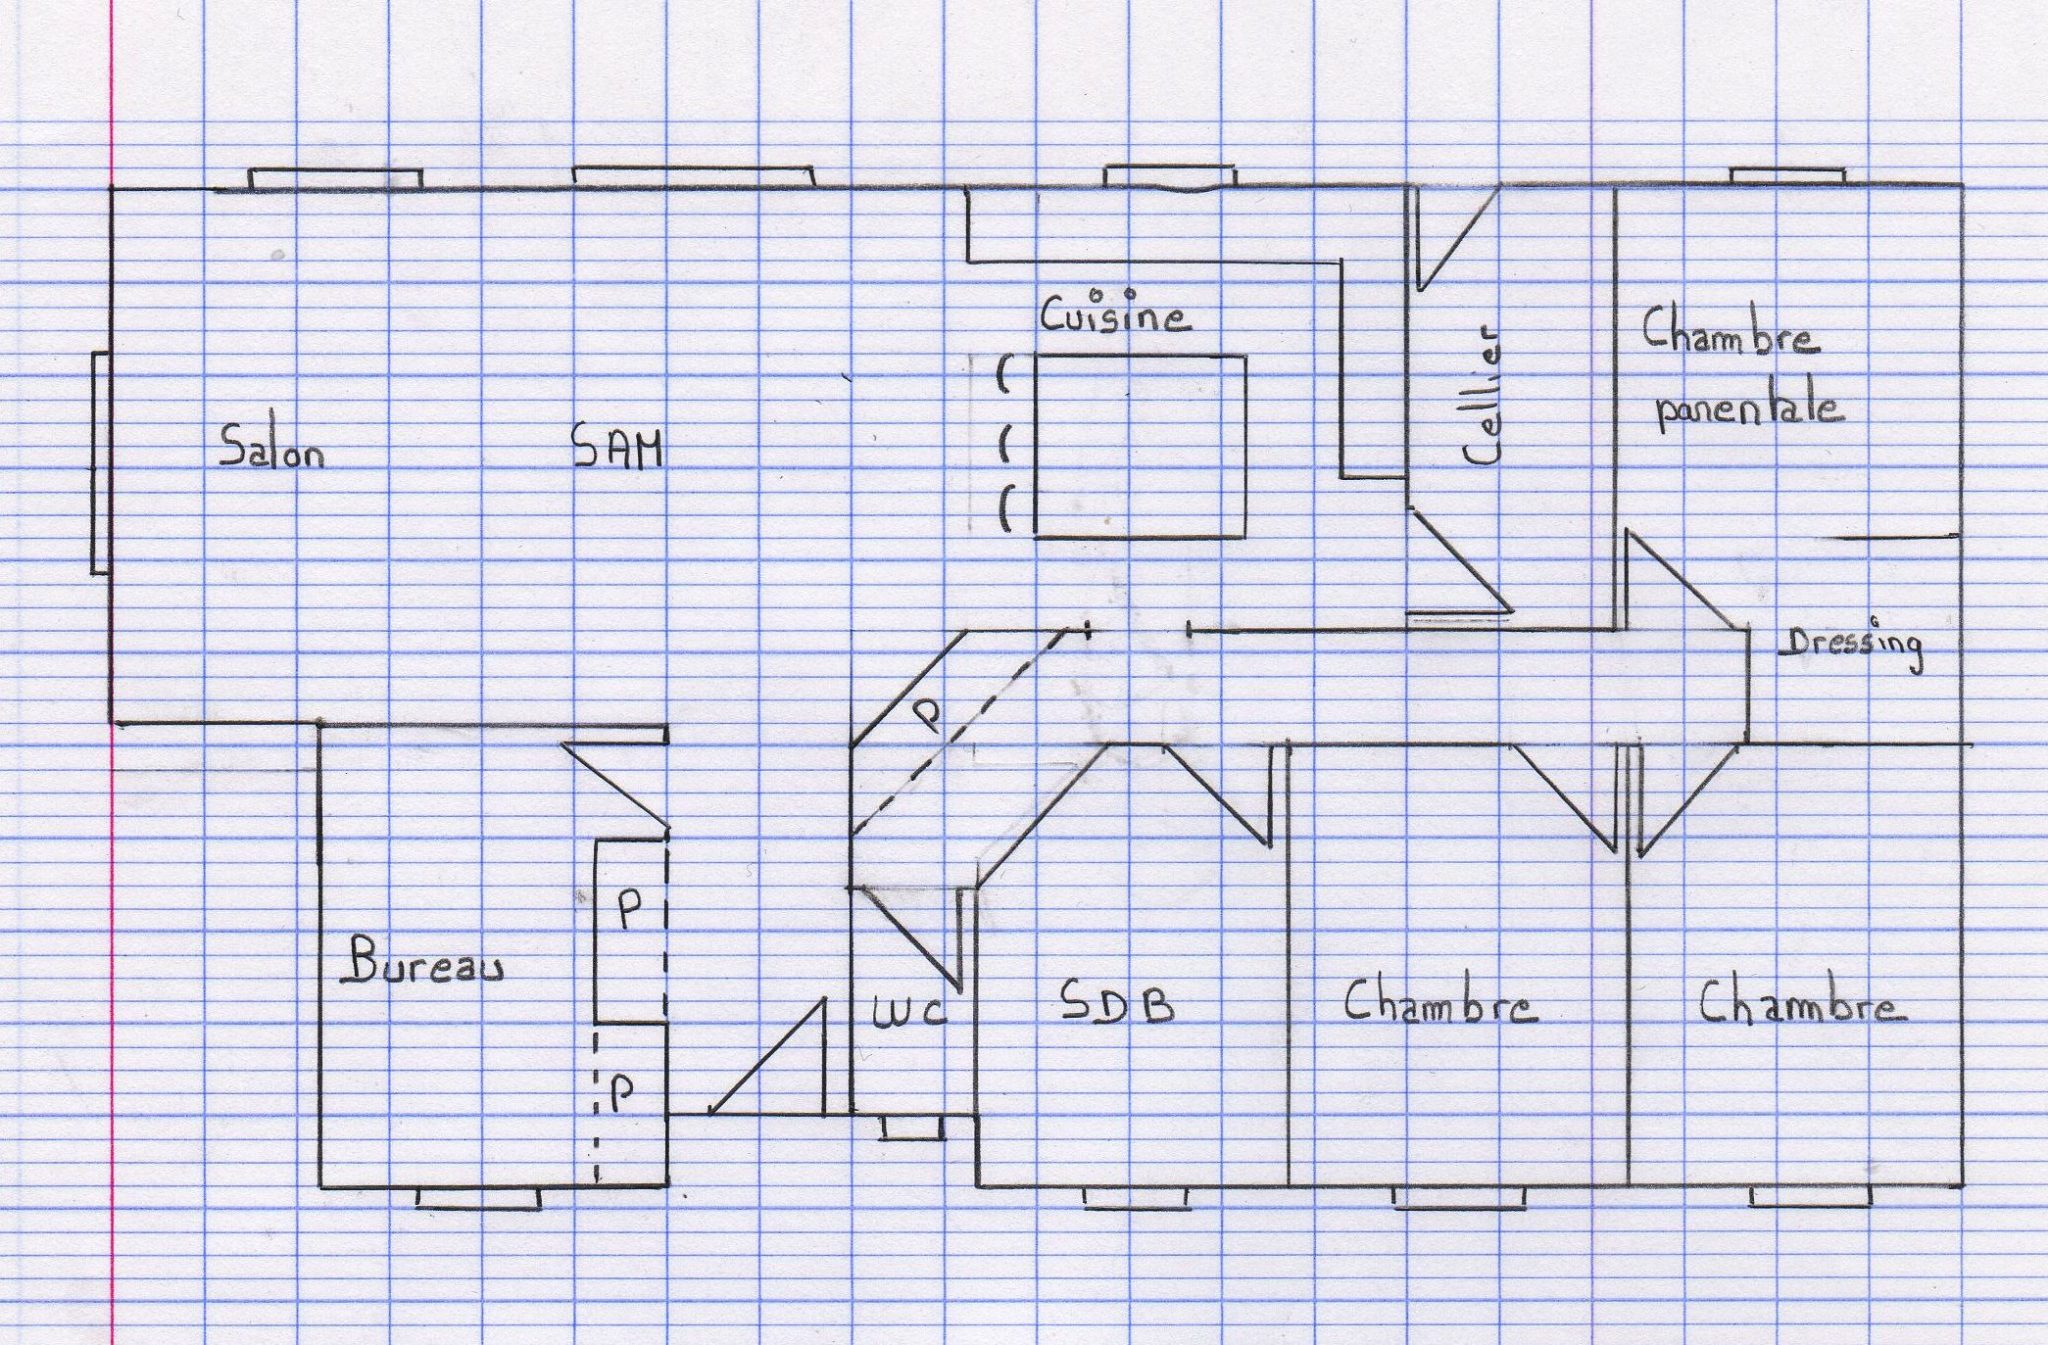 Cuisine
Chambre
parentale
Cellier
Salon
SAM
Dressing
P
P
Bureau
WC
SDB
Chambre
Chambre
P